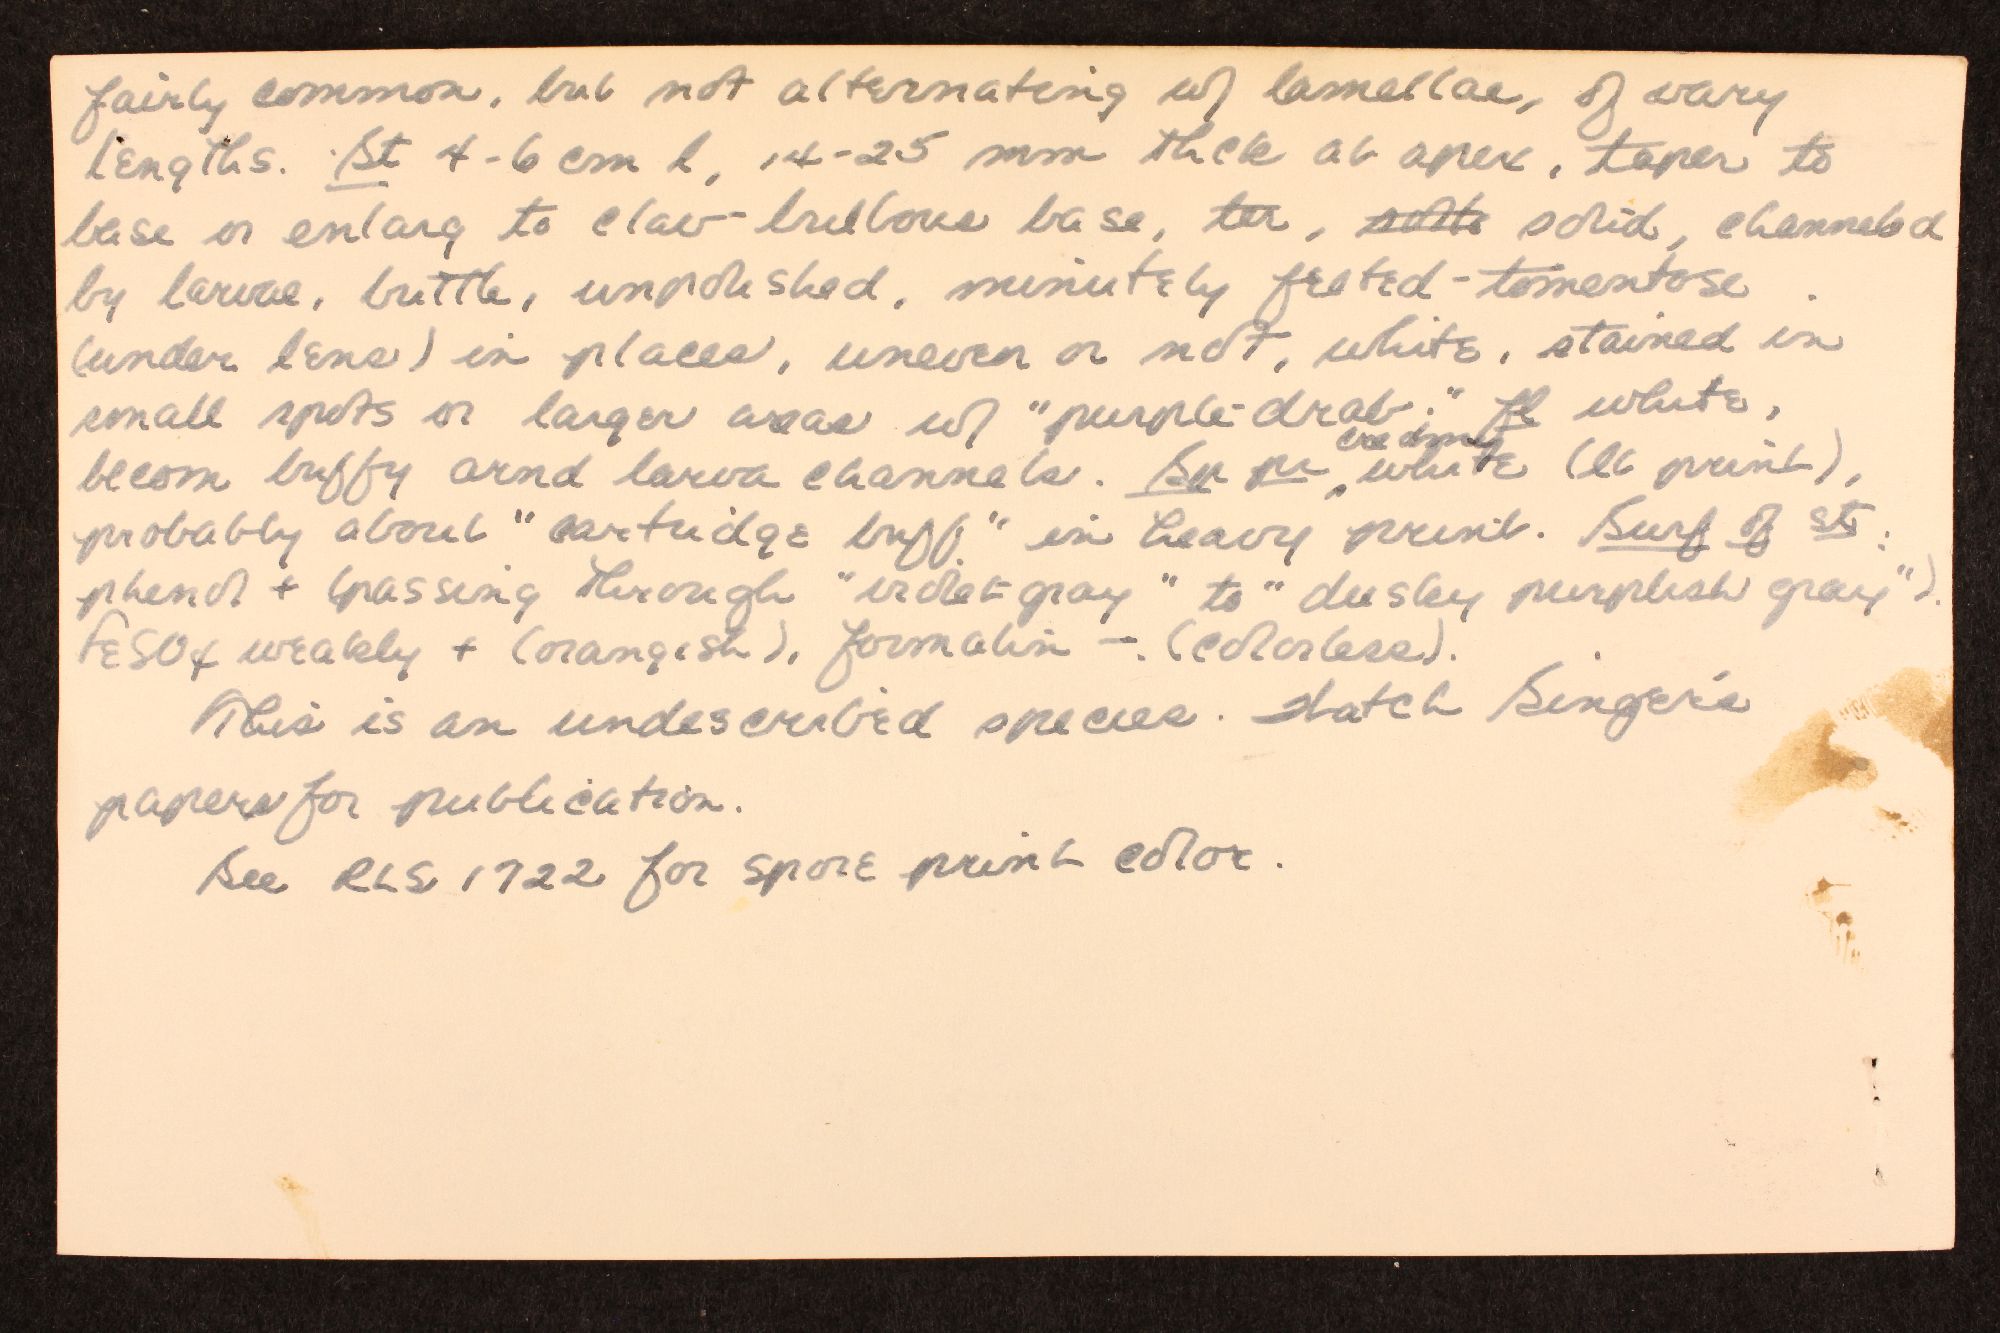 fairly common, but not alternating w/ lamellae, of vary
lengths. St 4-6 cm l, 14-25 mm thck at apex, taper to
base or enlarg to clav-bulbous base, ter, solid, channeled
by larvae, brittle, unpolished, minutely felted-tomentose
(under lens) in places, uneven or not, white, stained in
small spots or larger areas w/ "purple-drab." Fl white,
becom buffy arnd larva channels. Sp pr creamy white (lt print),
probably about "cartridge buff" in heavy print. Surf of st:
phenol + (passing through "violet-gray" to "dusky purplish gray").
FeSO4 weakly + (orangish), formalin –. (colorless).
This is an undescribed species. Watch Singer's
papers for publication.
See RLS 1722 for spore print color.